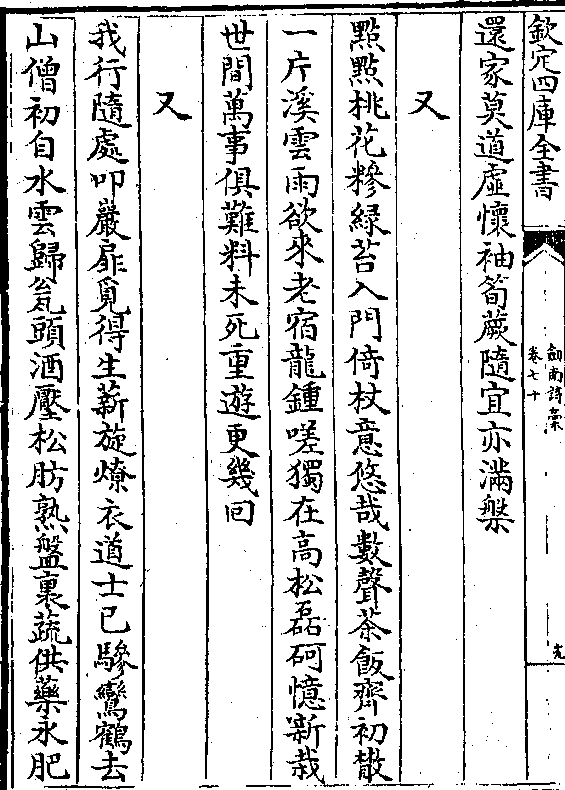 欽定四庫全書
劍南詩藁
卷七十
還家莫道虛懷袖筍蕨隨宜亦滿槃
又
點點桃花糝緑苔入門倚杖意悠哉數聲茶飯齊初散
一片溪雲雨欲來老宿龍鍾嗟獨在高松磊砢憶新栽
世間萬事俱難料未死重遊更幾回
又
我行隨處叩巖扉覓得生薪旋燎衣道士已驂鸞鶴去
山僧初自水雲歸瓮頭酒壓松肪熟盤裏蔬供藥永肥